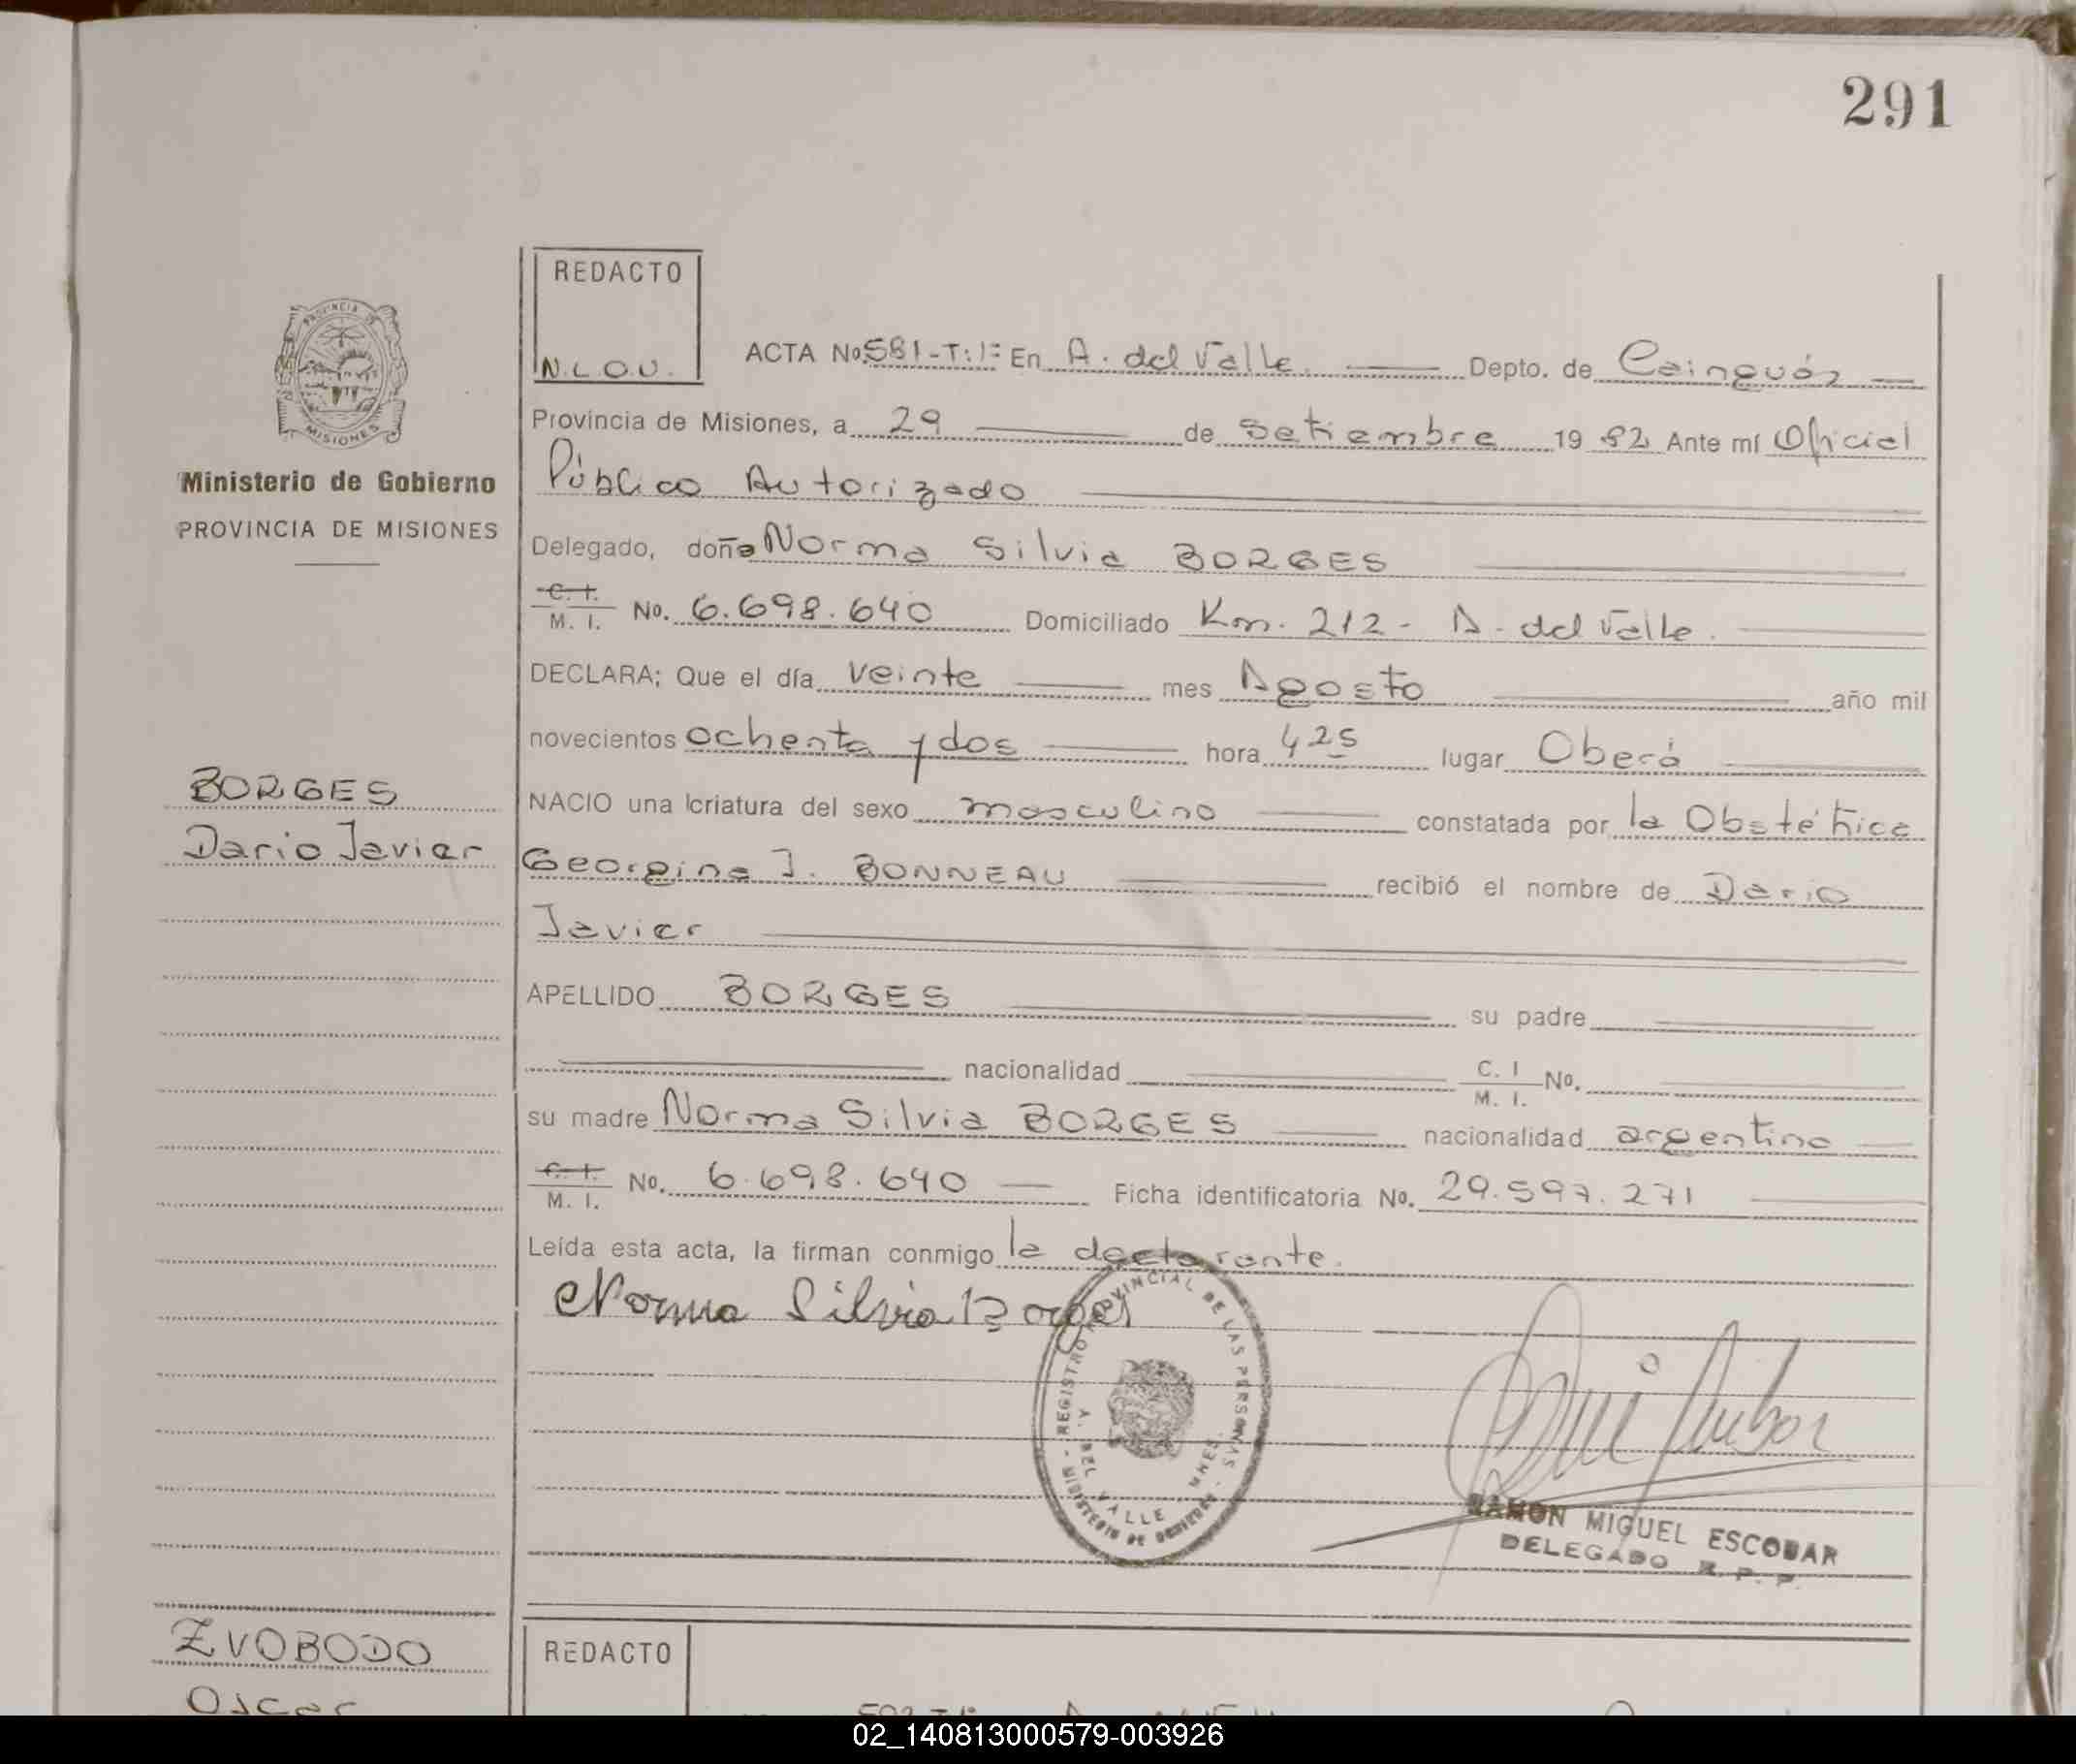 291
REDACTO
N.L.O.V.
ACTA No. 581-T:1º En A. del Valle. Depto. de Cainguás
Provincia de Misiones, a 29 de Setiembre 1982 Ante mí Oficial
Público Autorizado
Delegado, doña Norma Silvia BORGES
C. I. M. I. No. 6.698.640 Domiciliado Km. 212 - A. del Valle.
DECLARA; Que el día veinte mes Agosto año mil
novecientos ochenta y dos hora 4 25 lugar Oberá
NACIO una criatura del sexo masculino constatada por la Obstétrica
Georgina J. BONNEAU recibió el nombre de Dario
Javier
APELLIDO BORGES su padre
nacionalidad C. I M. I. No.
su madre Norma Silvia BORGES nacionalidad argentina
C. I. M. I. No. 6.698.640 Ficha identificatoria No. 29.597.271
Leída esta acta, la firman conmigo la declarante.
Norma Silvia Borges
REGISTRO PROVINCIAL DE LAS PERSONAS - MINISTERIO DE GOBIERNO -
A. DEL VALLE MNES.
RAMON MIGUEL ESCOBAR
DELEGADO R. P. P.
PROVINCIA DE
MISIONES
Ministerio de Gobierno
PROVINCIA DE MISIONES
BORGES
Dario Javier
ZVOBODO
Oscar
REDACTO
02_140813000579-003926